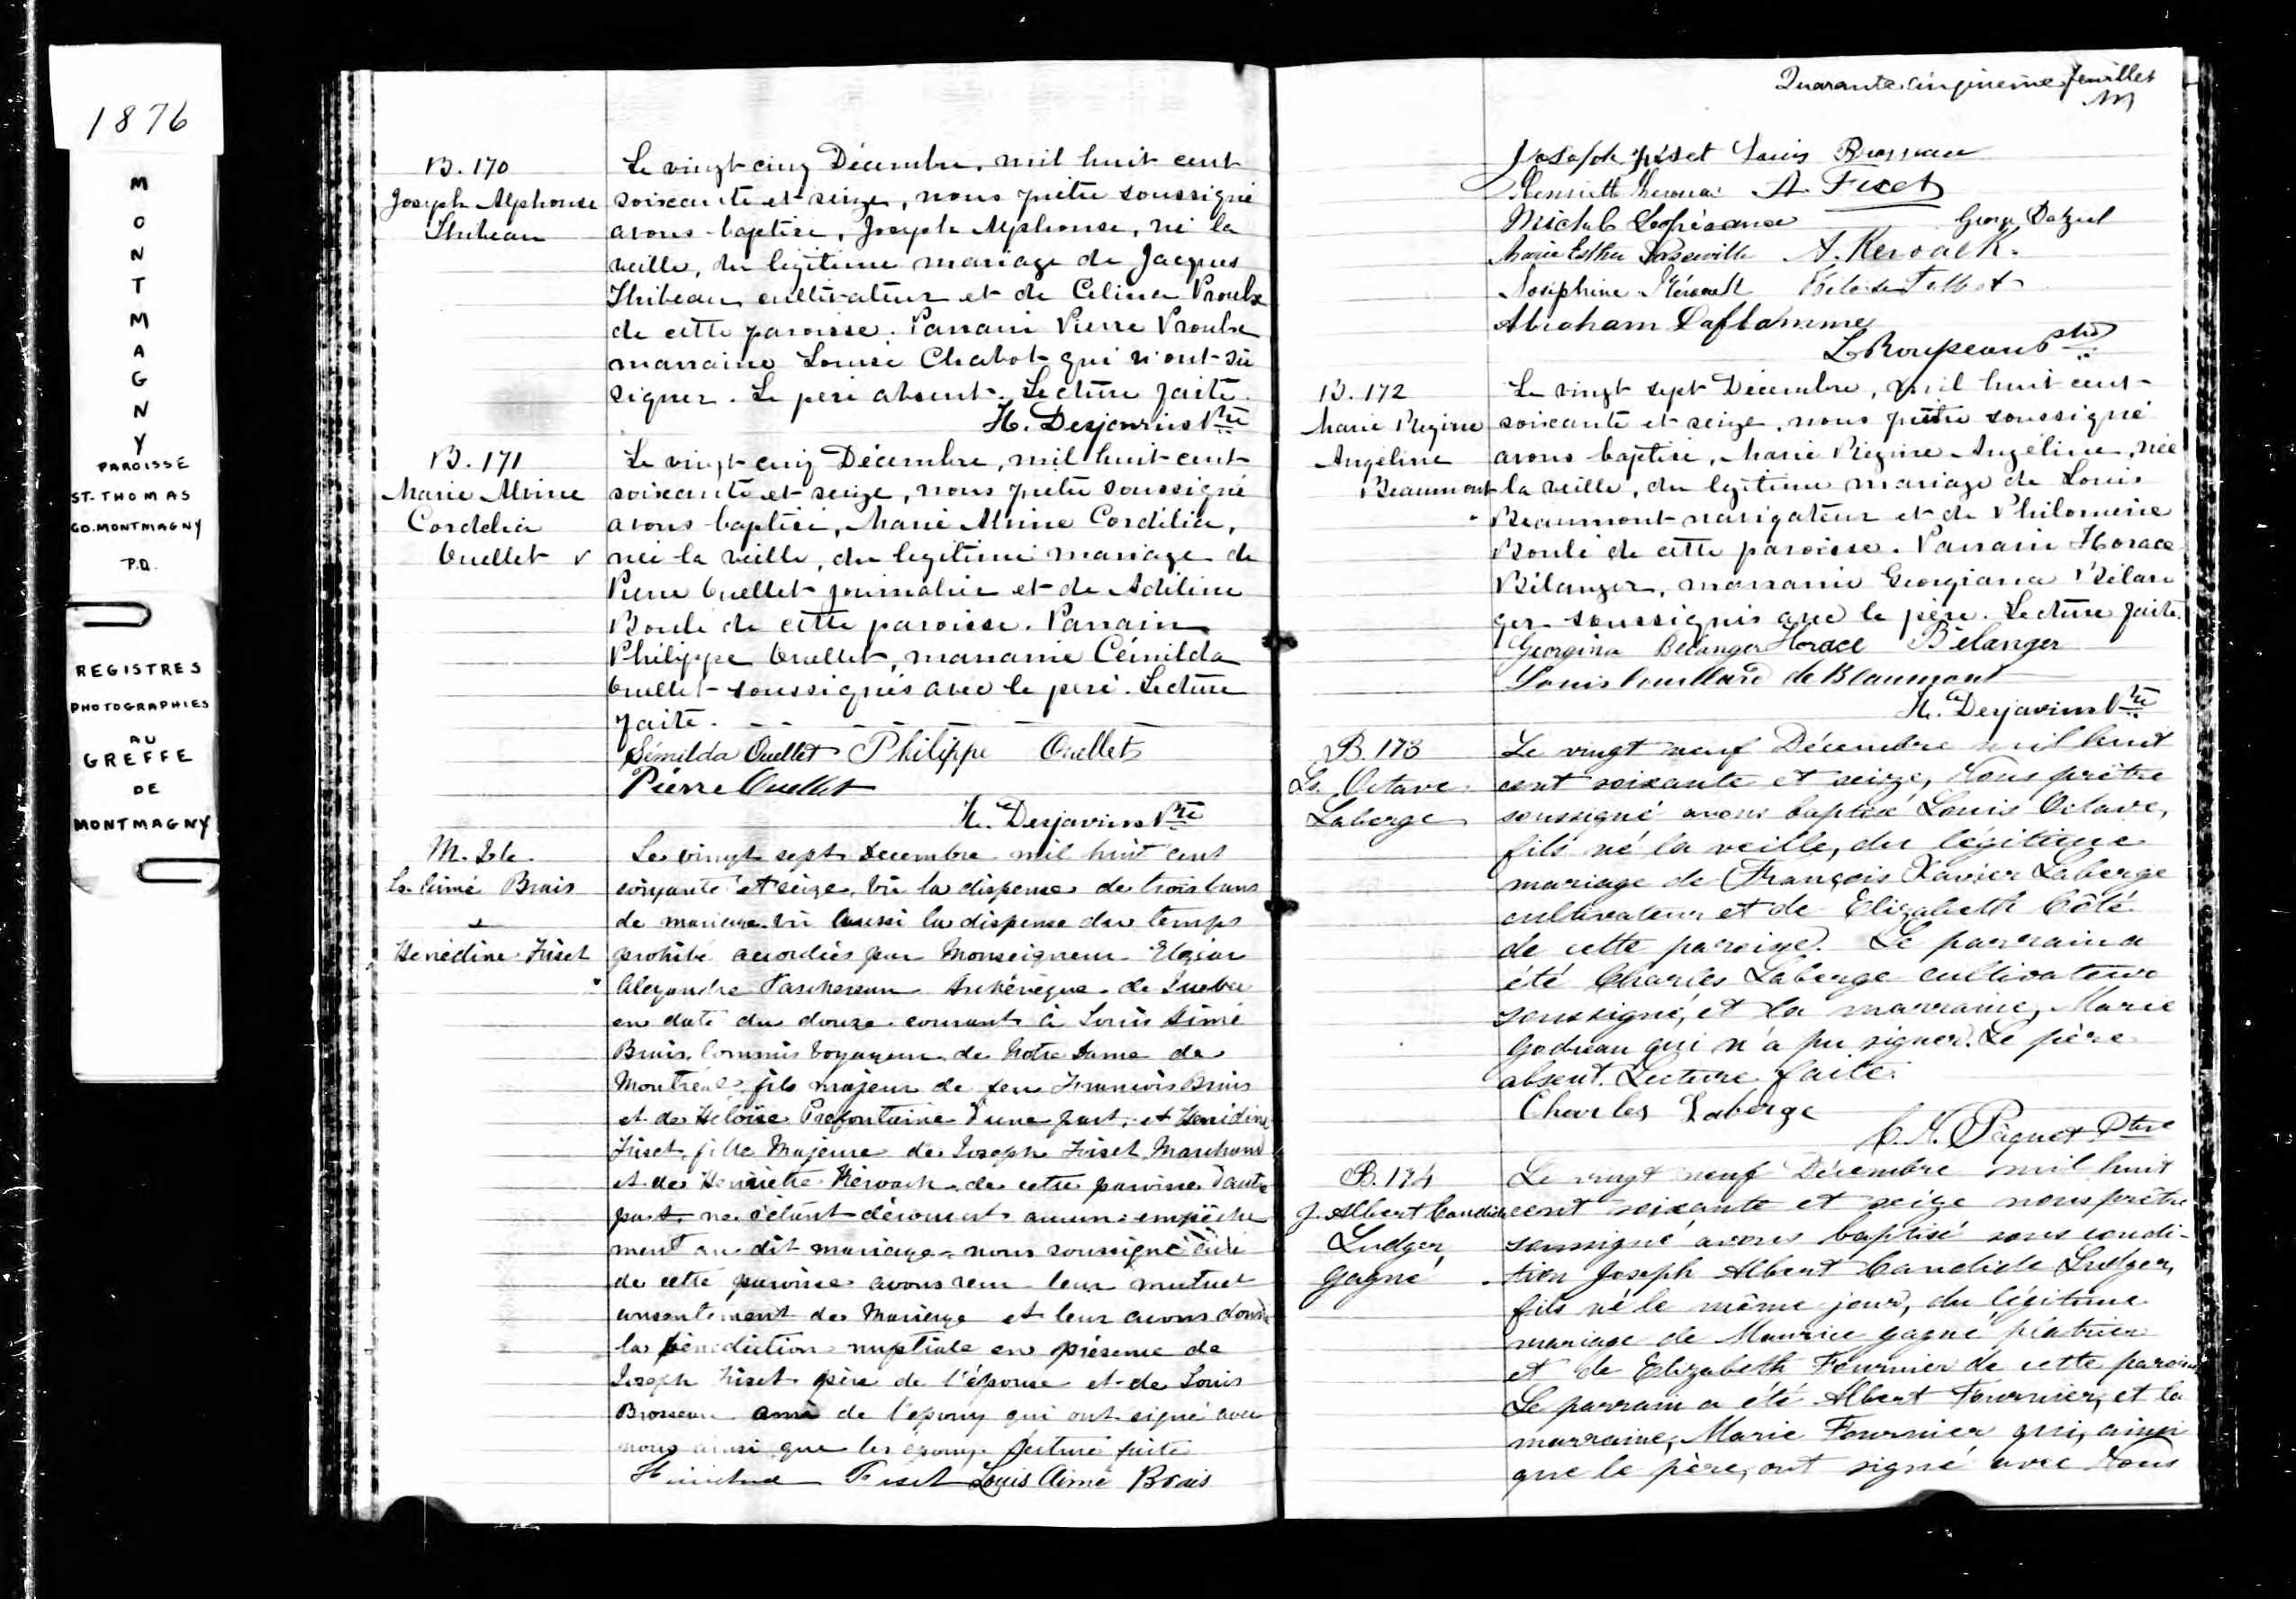 1876
MONTMAGNY
PAROISSE
ST. THOMAS
CO. MONTMAGNY
P.Q.
REGISTRES
PHOTOGRAPHIES
AU
GREFFE
DE
MONTMAGNY
B. 170
Joseph Alphonse
Thibeau
Le vingt-cinq Décembre, mil huit cent
soixante et seize, nous prêtre soussigné
avons baptisé, Joseph Alphonse, né la
veille, du légitime mariage de Jacques
Thibeau cultivateur et de Celina Proulx
de cette paroisse. Parrain Pierre Proulx
marraine Louise Chabot qui n'ont su
signer. Le père absent. Lecture faite.
H. Desjardins Ptre
B. 171
Marie Alvine
Cordelia
Ouellet
Le vingt-cinq Décembre, mil huit cent
soixante et seize, nous prêtre soussigné
avons baptisé, Marie Alvine Cordélia,
née la veille, du légitime mariage de
Pierre Ouellet journalier et de Adéline
Boulé de cette paroisse. Parrain
Philippe Ouellet, marraine Cénilda
Ouellet soussignés avec le père. Lecture
faite.
Sénilda Ouellet Philippe Ouellet
Pierre Ouellet
H. Desjardins Ptre
Ls. Aimé Brais
&
Henédine Fiset
Le vingt sept Decembre mil huit cent
soixante et seize, vu la dispense de trois bans
de mariage vu aussi la dispense du temps
prohibé accordées par Monseigneur Elzéar
Alexandre Taschereau Archévêque de Quebec
en date du douze courant à Louis Aimé
Brais, Commis voyageur de Notre Dame de
Montréal, fils majeur de feu François Brais
et de Héloïse Prefontaine d'une part, et Henédine
Fiset, fille Majeure de Joseph Fiset Marchand
et de Henriette Kérouack de cette paroisse d'autre
part, ne s'étant découvert aucun empêche
ment au dit mariage, nous soussigné curé
de cette paroisse avons reçu leur mutuel
consentement de Mariage et leur avons donné
la bénédiction nuptiale en présence de
Joseph Fiset père de l'épouse et de Louis
Brosseau ami de l'époux qui ont signé avec
nous ainsi que les époux. Lecture faite
Fiset Louis Aimé Brais
Quarante cinquième feuillet
Joseph Fiset Louis Brosseau
Henriette A. Fiset
Michel Lespérance George Dalziel
Marie Esther A. Keroack.
Joséphine Héloise Talbot
Abraham Laflamme
L Roupeau Ptre
B. 172
Marie Régine
Angéline
Beaumont
Le vingt sept Décembre, mil huit cent
soixante et seize, nous prêtre soussigné
avons baptisé, Marie Régine Angéline, née
la veille, du légitime mariage de Louis
Beaumont navigateur et de Philomène
Boulé de cette paroisse. Parrain Horace
Bélanger, marraine Georgiana Bélan
ger soussignés avec le père. Lecture faite.
Georgina Bélanger Horace Bélanger
Louis Couillard de Beaumont
H. Desjardins Ptre
B. 173
Ls. Octave
Laberge
Le vingt neuf Décembre mil huit
cent soixante et seize, Nous prêtre
soussigné avons baptisé Louis Octave,
fils né la veille, du légitime
mariage de François Xavier Laberge
cultivateur et de Elizabeth Côté
de cette paroisse. Le parrain a
été Charles Laberge cultivateur
soussigné, et la marraine, Marie
Godreau qui n'a pu signer. Le père
absent. Lecture faite.
Charles Laberge
C. N. Paquet Ptre
B. 174
J. Albert Candide
Ludger
Gagné
Le vingt neuf Décembre mil huit
cent soixante et seize nous prêtre
soussigné avons baptisé sous condi-
tion Joseph Albert Candide Ludger,
fils né le même jour, du légitime
mariage de Maurice Gagné plâtrier
et de Elizabeth Fournier de cette paroisse
Le parrain a été Albert Fournier, et la
marraine, Marie Fournier qui, ainsi
que le père, ont signé avec Nous